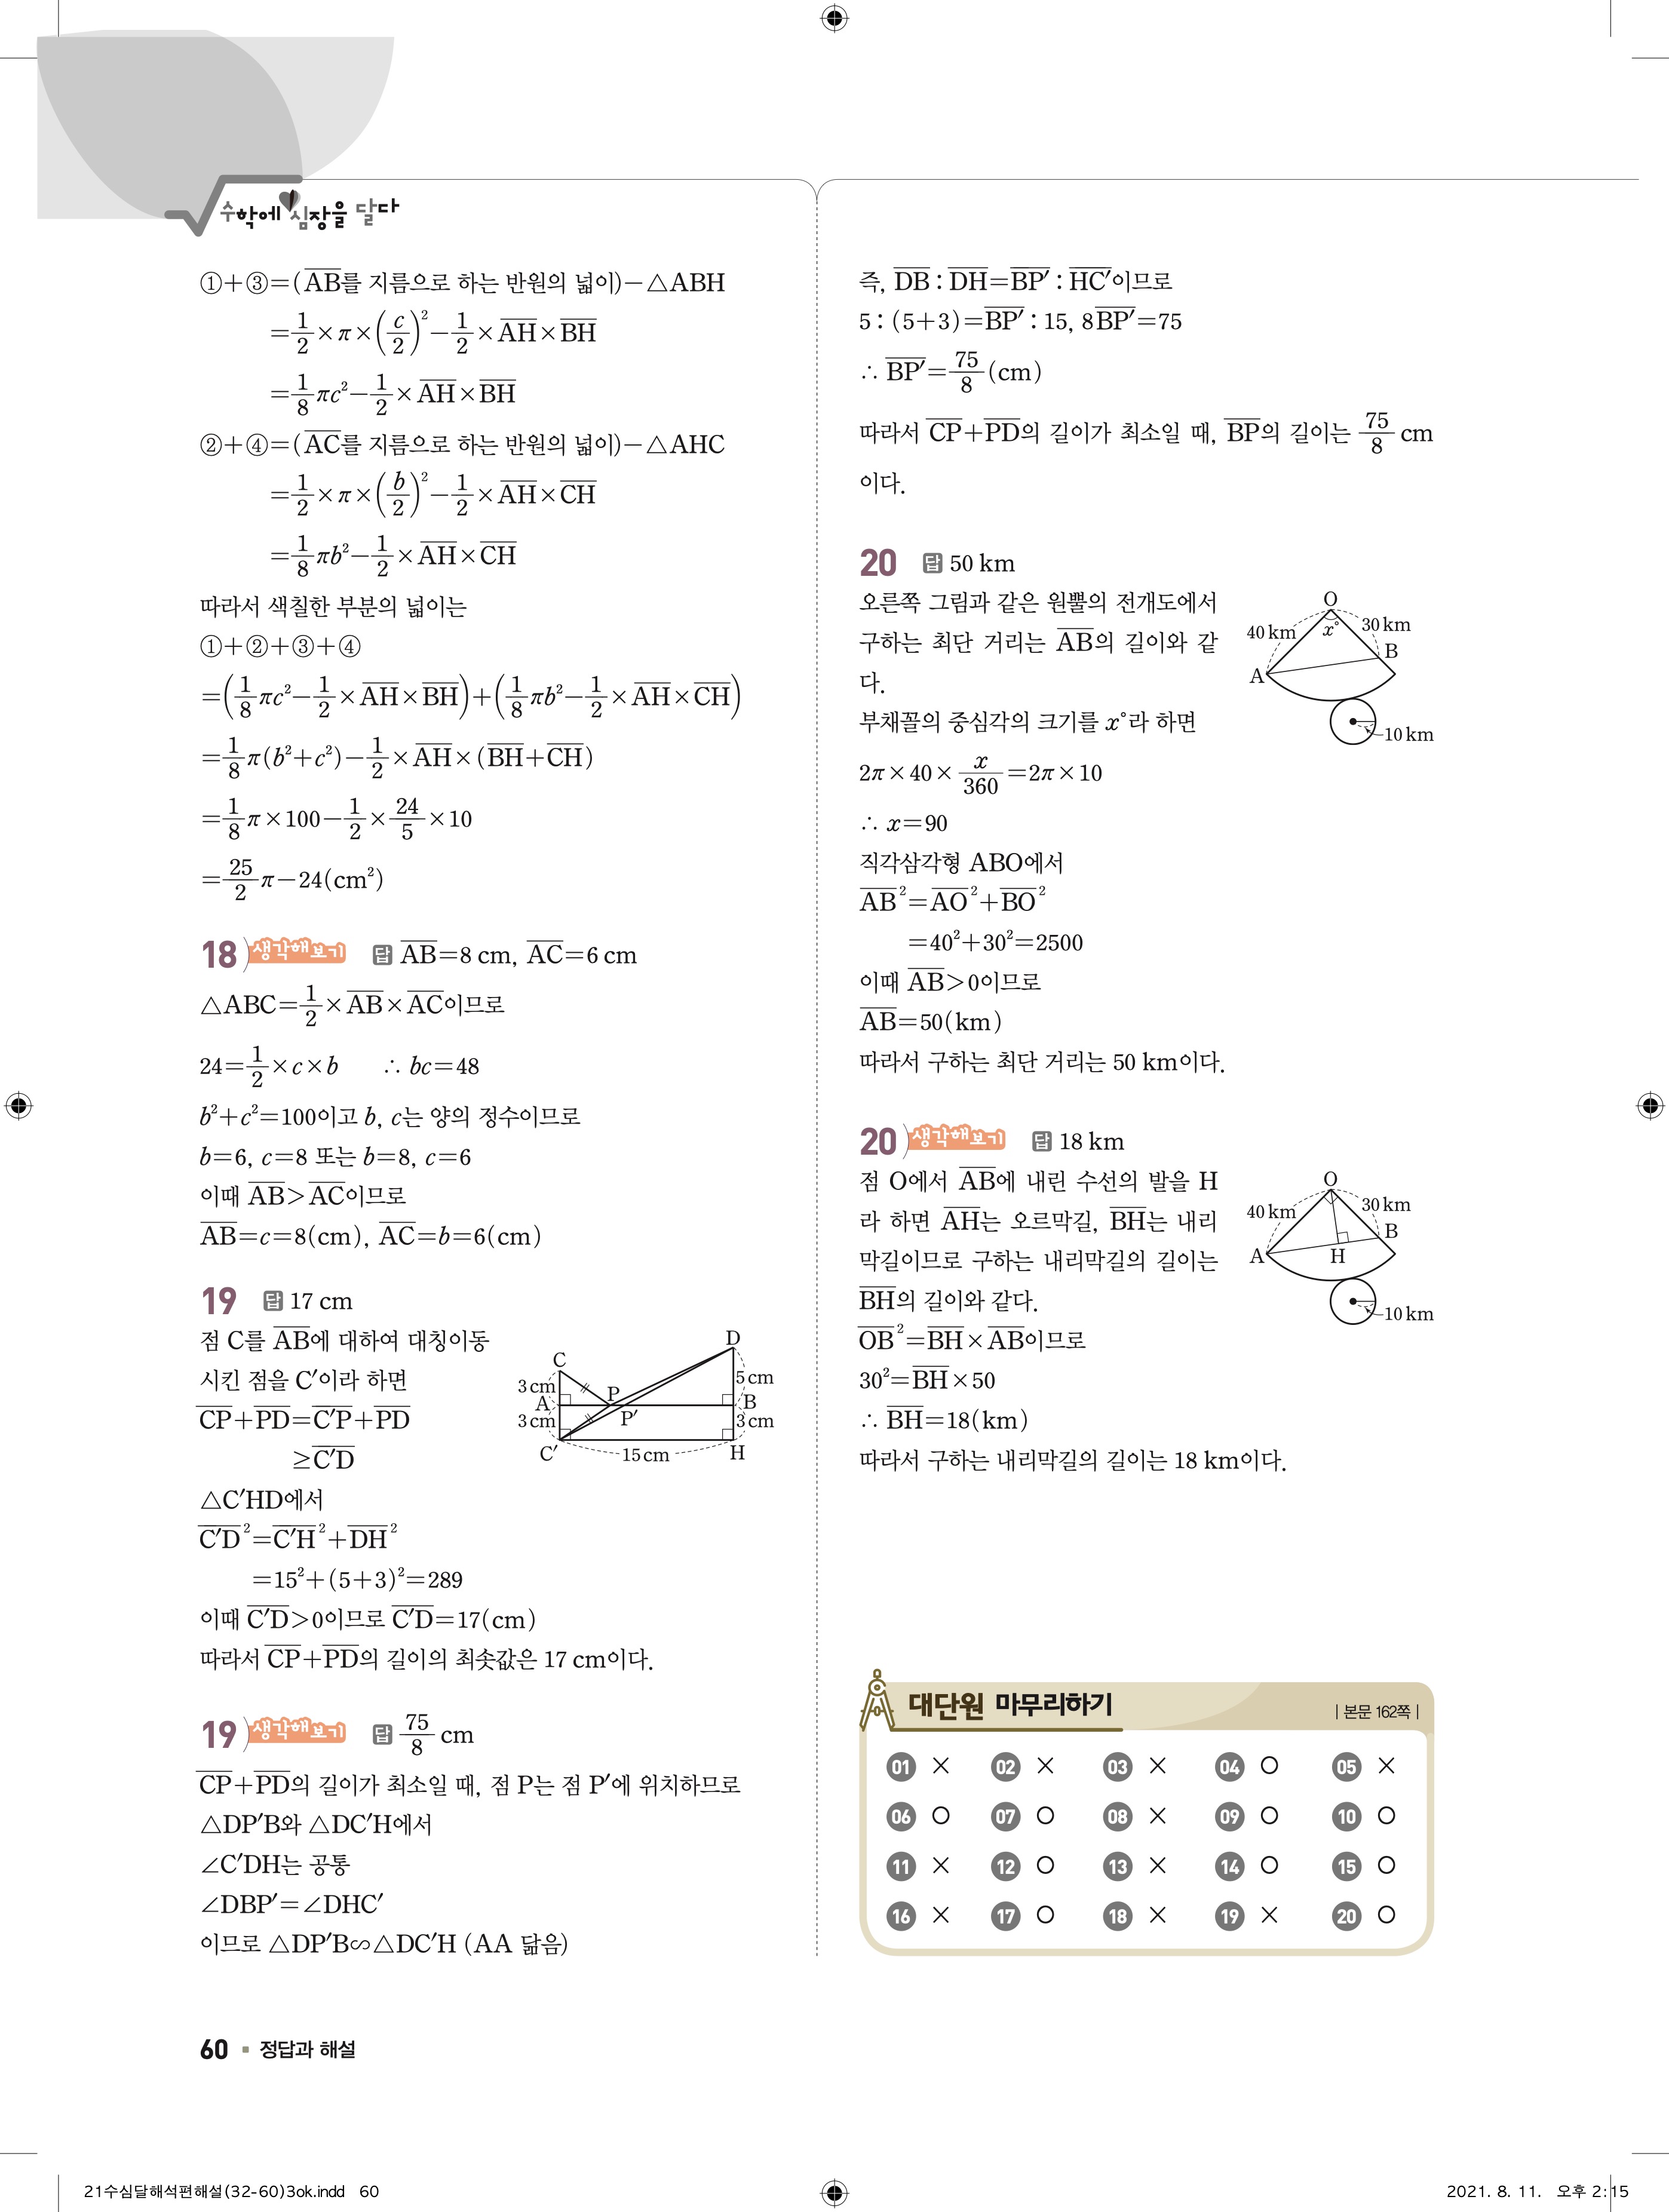 수학에 심장을 달다
①+③=(A̅B̅를 지름으로 하는 반원의 넓이)-△ABH
=1/2×π×(c/2)²-1/2×A̅H̅×B̅H̅
=1/8πc²-1/2×A̅H̅×B̅H̅
②+④=(A̅C̅를 지름으로 하는 반원의 넓이)-△AHC
=1/2×π×(b/2)²-1/2×A̅H̅×C̅H̅
=1/8πb²-1/2×A̅H̅×C̅H̅
따라서 색칠한 부분의 넓이는
①+②+③+④
=(1/8πc²-1/2×A̅H̅×B̅H̅)+(1/8πb²-1/2×A̅H̅×C̅H̅)
=1/8π(b²+c²)-1/2×A̅H̅×(B̅H̅+C̅H̅)
=1/8π×100-1/2×24/5×10
=25/2π-24(cm²)
18) 생각해보기 답 A̅B̅=8 cm, A̅C̅=6 cm
△ABC=1/2×A̅B̅×A̅C̅이므로
24=1/2×c×b ∴ bc=48
b²+c²=100이고 b, c는 양의 정수이므로
b=6, c=8 또는 b=8, c=6
이때 A̅B̅>A̅C̅이므로
A̅B̅=c=8(cm), A̅C̅=b=6(cm)
19 답 17 cm
점 C를 A̅B̅에 대하여 대칭이동
시킨 점을 C′이라 하면
C̅P̅+P̅D̅=C̅′P̅+P̅D̅
≥C̅′D̅
D
C
3 cm
5 cm
P
A
B
3 cm
P′
3 cm
C′
15 cm
H
△C′HD에서
C̅′D̅²=C̅′H̅²+D̅H̅²
=15²+(5+3)²=289
이때 C̅′D̅>0이므로 C̅′D̅=17(cm)
따라서 C̅P̅+P̅D̅의 길이의 최솟값은 17 cm이다.
19) 생각해보기 답 75/8 cm
C̅P̅+P̅D̅의 길이가 최소일 때, 점 P는 점 P′에 위치하므로
△DP′B와 △DC′H에서
∠C′DH는 공통
∠DBP′=∠DHC′
이므로 △DP′B∽△DC′H (AA 닮음)
즉, D̅B̅ : D̅H̅=B̅P̅′ : H̅C̅′이므로
5 : (5+3)=B̅P̅′ : 15, 8B̅P̅′=75
∴ B̅P̅′=75/8(cm)
따라서 C̅P̅+P̅D̅의 길이가 최소일 때, B̅P̅의 길이는 75/8 cm
이다.
20 답 50 km
오른쪽 그림과 같은 원뿔의 전개도에서
구하는 최단 거리는 A̅B̅의 길이와 같
다.
부채꼴의 중심각의 크기를 x°라 하면
O
40 km
x°
30 km
B
A
10 km
2π×40×x/360=2π×10
∴ x=90
직각삼각형 ABO에서
A̅B̅²=A̅O̅²+B̅O̅²
=40²+30²=2500
이때 A̅B̅>0이므로
A̅B̅=50(km)
따라서 구하는 최단 거리는 50 km이다.
20) 생각해보기 답 18 km
점 O에서 A̅B̅에 내린 수선의 발을 H
라 하면 A̅H̅는 오르막길, B̅H̅는 내리
막길이므로 구하는 내리막길의 길이는
B̅H̅의 길이와 같다.
O
40 km
30 km
B
A
H
10 km
O̅B̅²=B̅H̅×A̅B̅이므로
30²=B̅H̅×50
∴ B̅H̅=18(km)
따라서 구하는 내리막길의 길이는 18 km이다.
대단원 마무리하기 | 본문 162쪽 |
01 × 02 × 03 × 04 ○ 05 ×
06 ○ 07 ○ 08 × 09 ○ 10 ○
11 × 12 ○ 13 × 14 ○ 15 ○
16 × 17 ○ 18 × 19 × 20 ○
60 ▪ 정답과 해설
21수심달해석편해설(32-60)3ok.indd 60
2021. 8. 11. 오후 2:15